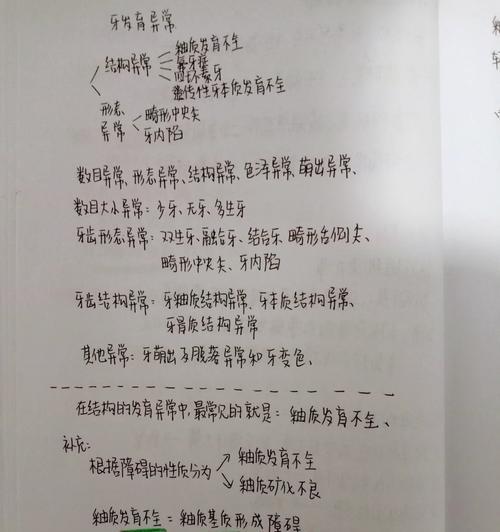 牙发育异常
结构异常
釉质发育不全
氟牙症
四环素牙
遗传性牙本质发育不全
形态
异常
畸形中央尖
牙内陷
数目异常、形态异常、结构异常、色泽异常、萌出异常、
数目大小异常：少牙、无牙、多生牙
牙齿形态异常：双生牙、融合牙、结合牙、畸形舌侧尖、
畸形中央尖、牙内陷
牙齿结构异常：牙釉质结构异常、牙本质结构异常、
牙骨质结构异常
其他异常：牙萌出及脱落异常和牙变色、
在结构的发育异常中，最常见的就是：釉质发育不全、
补充：
根据障碍的性质分为
釉质发育不全
釉质矿化不良
釉质发育不全：釉质基质形成障碍